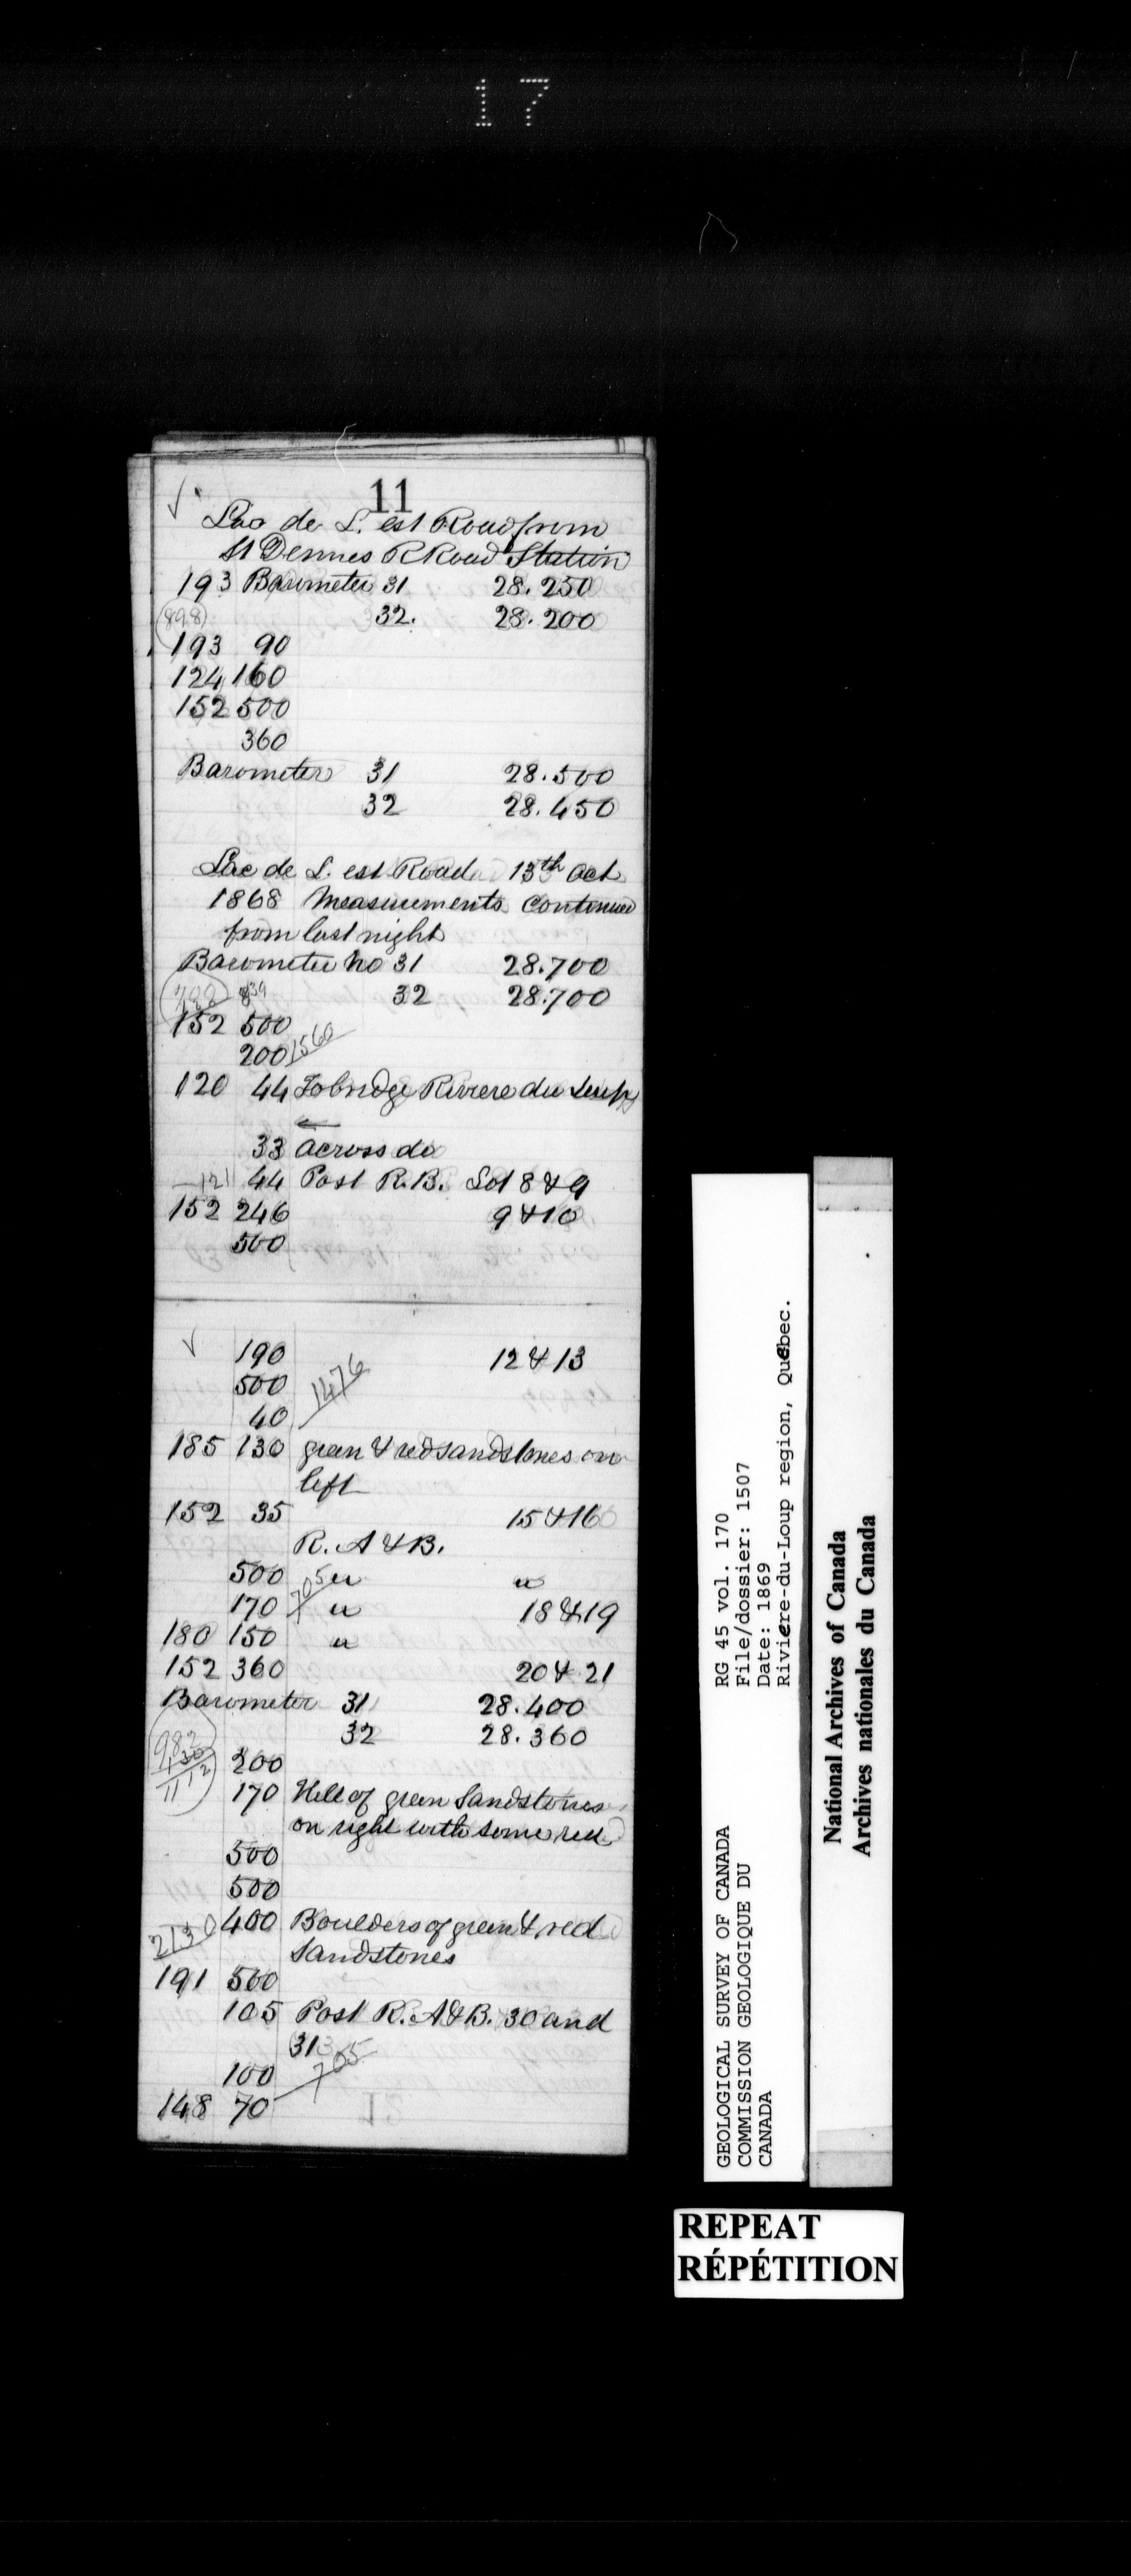 17
11
✓
Lac de L. est Road from
St Dennes R Road Station
193 Barometer 31 28.250
(898) 32. 28.200
193 90
124 160
152 500
360
Barometer 31 28.500
32 28.450
Lac de L. est Road 13th Oct
1868 Measurements continued
from last night
Barometer No 31 28.700
839 32 28.700
152 500
200 1560
120 44 To bridge Riviere du Loup
33 across do
121 44 Post R.B. Lot 8 & 9
152 246 9 & 10
500
✓ 190 12 & 13
500 1476
40
185 130 green & red sandstones on
left
152 35 15 & 16
R. A & B.
500 " "
170 705 " 18 & 19
180 150 "
152 360 20 & 21
Barometer 31 28.400
32 28.360
982
130
1112
200
170 Hill of green Sandstones
on right with some red
500
500
400 Boulders of green & red
2130 Sandstones
191 500
105 Post R. A & B. 30 and
31
100 705
148 70
GEOLOGICAL SURVEY OF CANADA
COMMISSION GEOLOGIQUE DU
CANADA
RG 45 vol. 170
File/dossier: 1507
Date: 1869
Riviere-du-Loup region, Quebec.
National Archives of Canada
Archives nationales du Canada
REPEAT
RÉPÉTITION